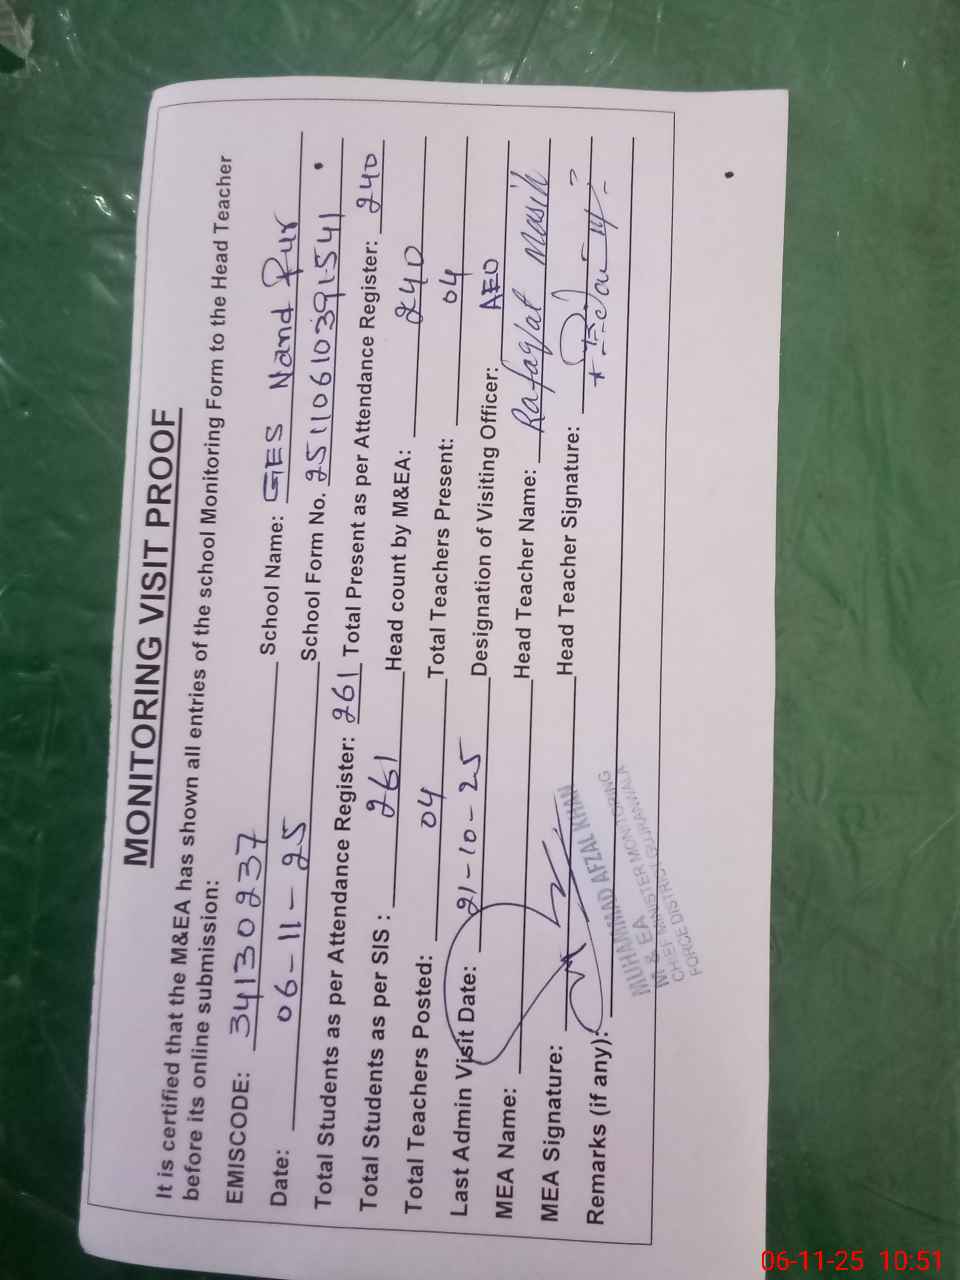 MONITORING VISIT PROOF
It is certified that the M&EA has shown all entries of the school Monitoring Form to the Head Teacher
before its online submission:
EMISCODE: 34130237 School Name: GES Nand Pur
Date: 06-11-25 School Form No. 25110610391541
Total Students as per Attendance Register: 261 Total Present as per Attendance Register: 240
Total Students as per SIS : 261 Head count by M&EA: 240
Total Teachers Posted: 04 Total Teachers Present: 04
Last Admin Visit Date: 21-10-25 Designation of Visiting Officer: AEO
MEA Name: Head Teacher Name: Rafaqat Masih
MEA Signature: Head Teacher Signature:
Remarks (if any):
MUHAMMAD AFZAL KHAN
M & EA
CHIEF MINISTER MONITORING
FORCE DISTRICT GUJRANWALA
06-11-25 10:51